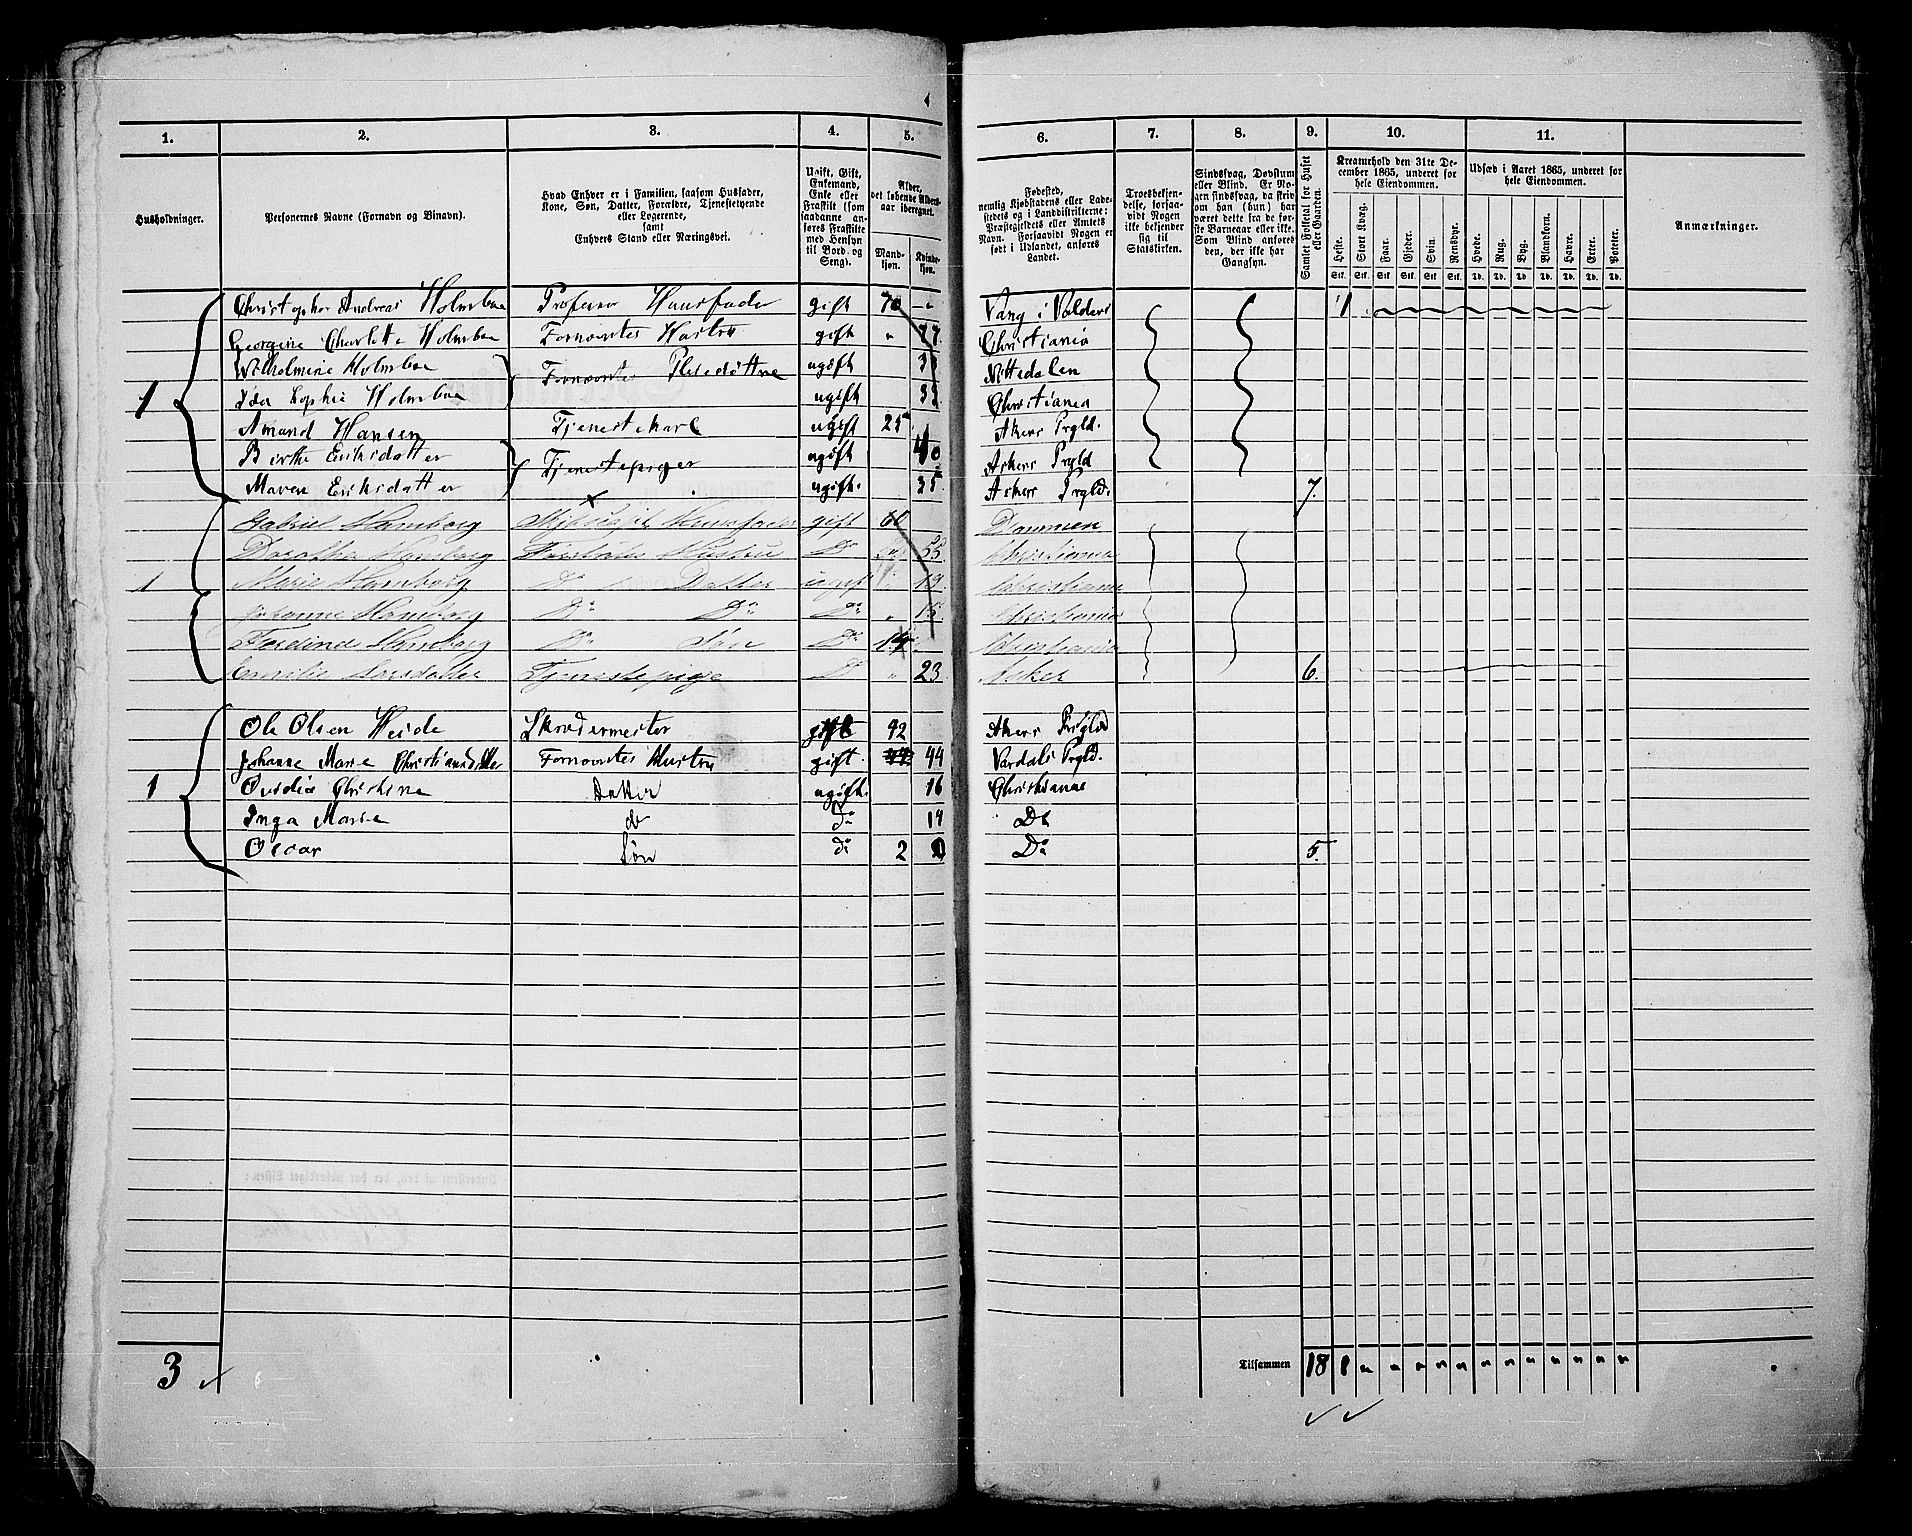 4
1.
2.
3.
4.
5.
6.
7.
8.
9.
10.
11.
Husholdninger.
Personernes Navne (Fornavn og Binavn).
Hvad Enhver er i Familien, saasom Husfader, Kone, Søn, Datter, Forældre, Tjenestetyende eller Logerende, samt Enhvers Stand eller Næringsvei.
Ugift, Gift, Enkemand, Enke eller Fraskilt (som saadanne anføres Fraskilte med Hensyn til Bord og Seng).
Alder, det løbende Alders-aar iberegnet.
Mand-kjøn.
Kvinde-kjøn.
Fødested, nemlig Kjøbstadens eller Ladestedets og i Landdistrikterne: Præstegjeldets eller Amtets Navn. Forsaavidt Nogen er født i Udlandet, anføres Landet.
Troesbekjendelse, forsaavidt Nogen ikke bekjender sig til Statskirken.
Sindssvag, Døvstum eller Blind. Er Nogen sindssvag, da skrives om han (hun) har været dette fra de første Barneaar eller ikke. Som Blind anføres den, der ikke har Gangsyn.
Samlet Folketal for Huset eller Gaarden.
Kreaturhold den 31te December 1865, underet for hele Eiendommen.
Udsæd i Aaret 1865, underet for hele Eiendommen.
Anmærkninger.
Heste. Stort Kvæg. Faar. Gjeder. Svin. Rensdyr. Hvede. Rug. Byg. Blandkorn. Havre. Erter. Poteter.
Stk. Stk. Stk. Stk. Stk. Stk. Td. Td. Td. Td. Td. Td. Td.
Christopher Andreas Holmboe Professor Huusfader gift 70 Vang i Valders 1
Georgine Charlotte Holmboe Fornævntes Hustru gift Christiania
Wilhelmine Holmboe Fornævntes ugift Nittedalen
1 Ida Sophie Holmboe ugift Christiania
Amund Hansen Tjenestekarl ugift 25 Akers Prgld.
Birthe Eriksdatter Tjenestepiger ugift 40 Akers Prgld
Maren Eriksdatter ugift. 35 Akers Prgld. 7.
Gabriel Hamborg Huusfader gift 60 Drammen
Dorothea Hamborg Hustru Do 55 Christiania
1 Marie Hamborg Do Datter ugift 19 Christiania
Johanne Hamborg Do Do Do 15 Christiania
Hamborg Do Søn Do 14 Christiania
Emilie Tjenestepige D 23 Asker 6.
Ole Olsen Heide Skrædermester gift 42 Akers Prgld
Johanne Marie Christiansdatter Fornævntes Hustru gift. 44 Vardals Prgld.
1 Christine Datter ugift. 16 Christiania
Inga Marie do do 14 Do
Oscar Søn do 2 Do 5.
3
Tilsammen 18 1